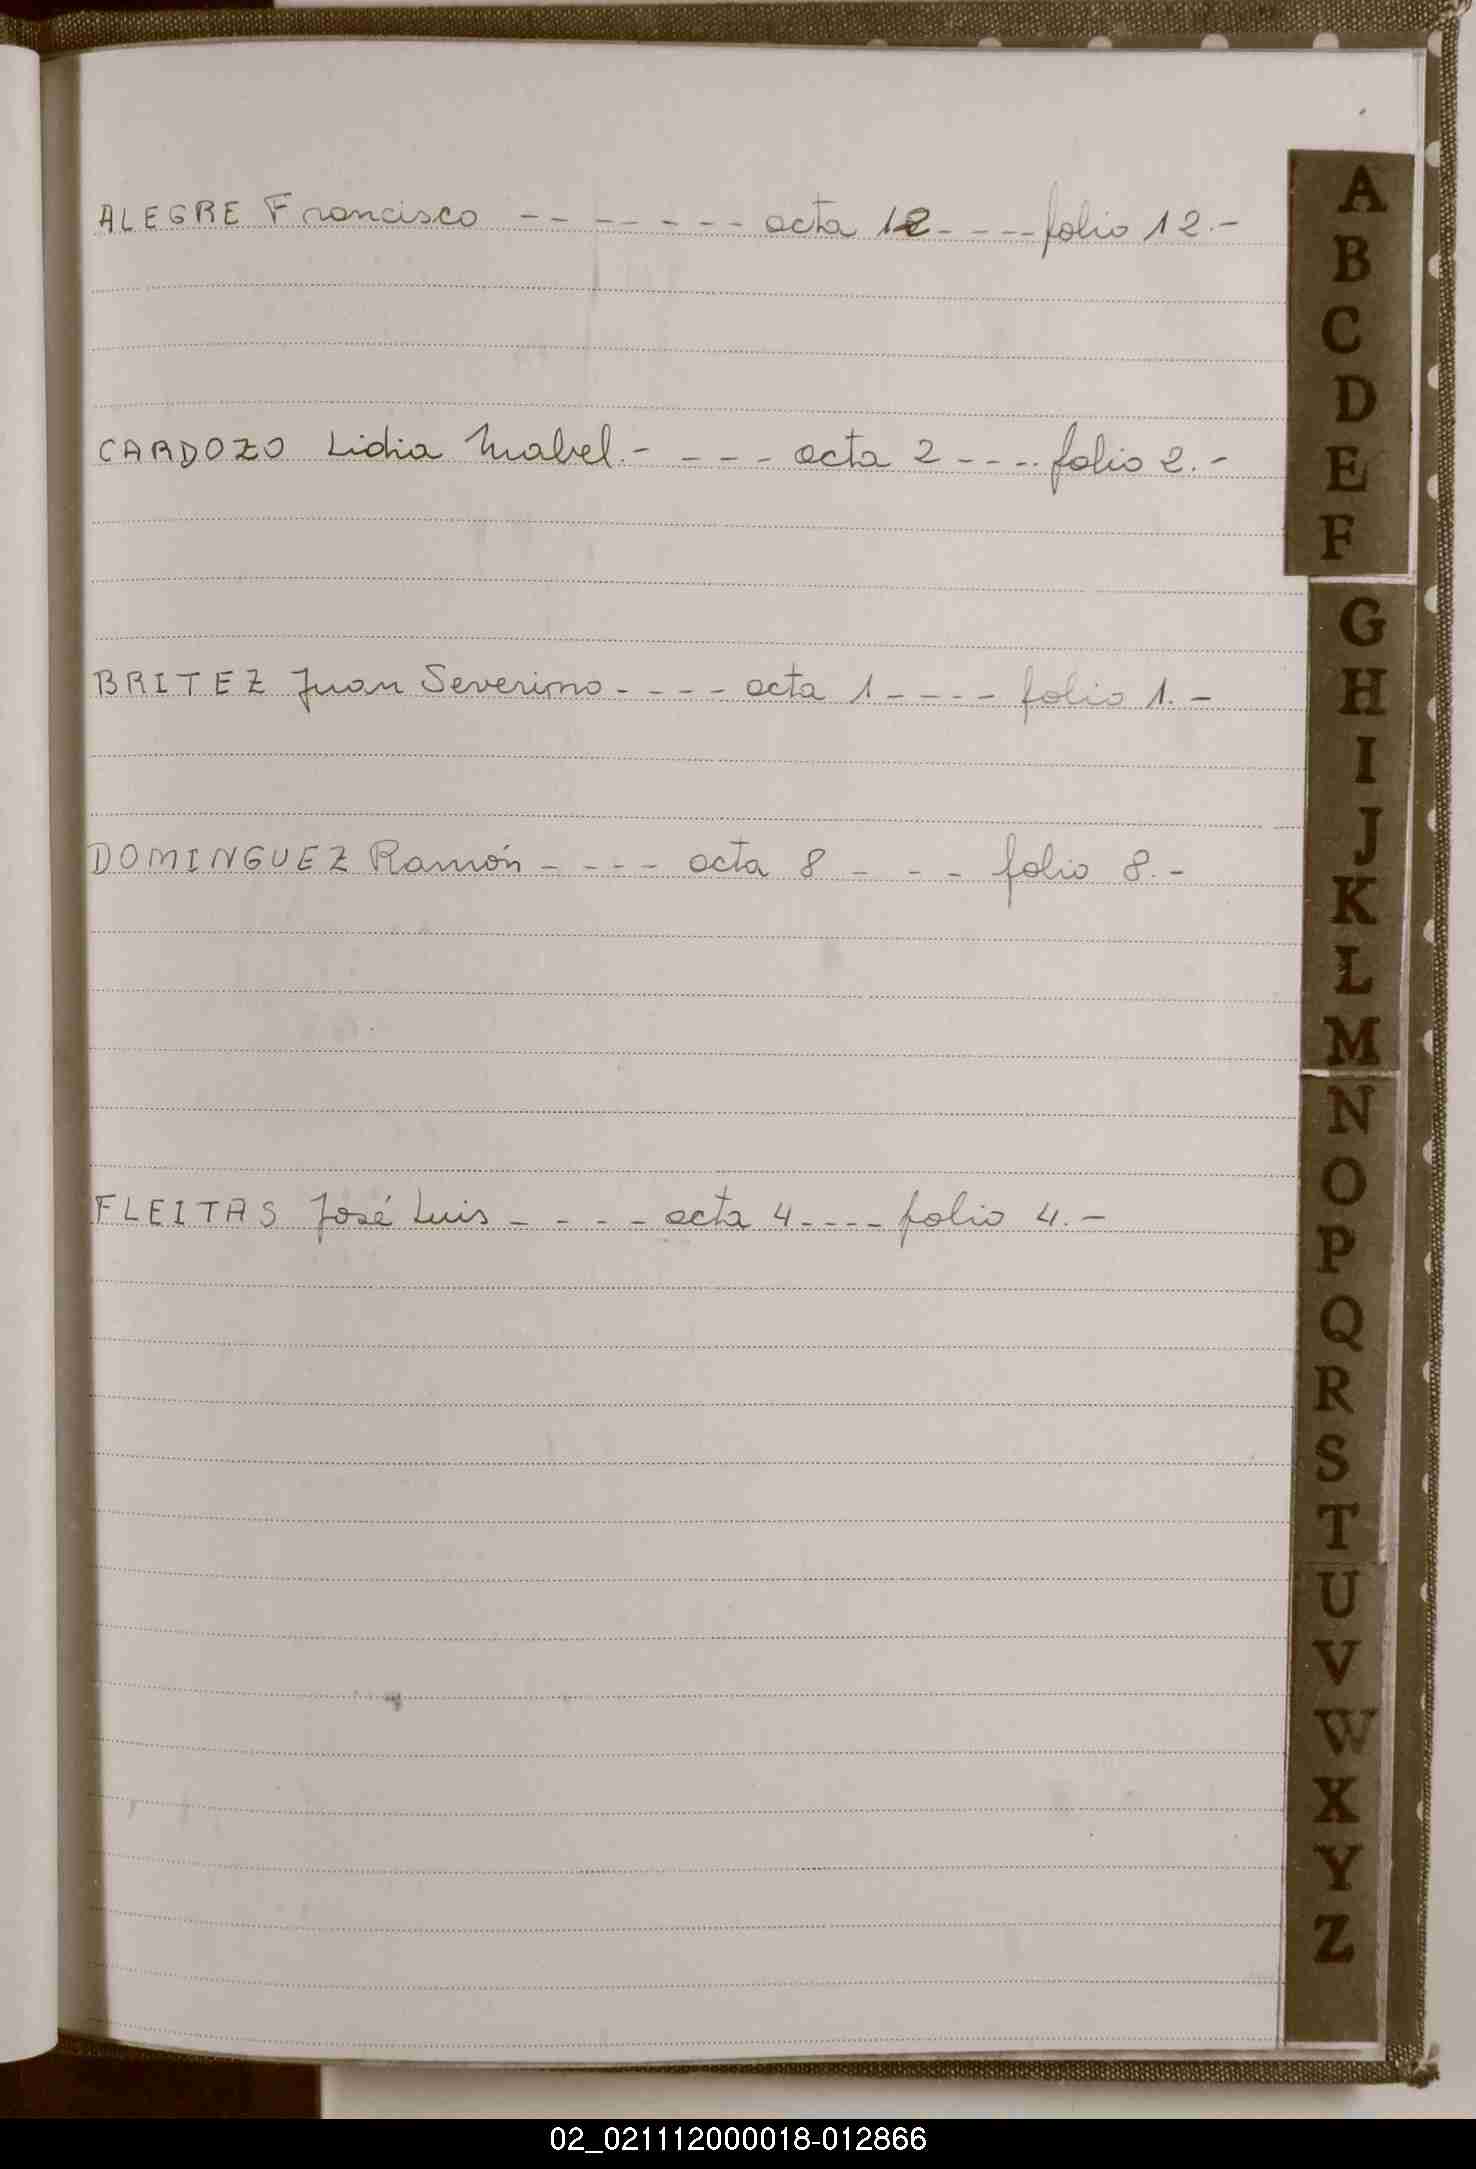 ALEGRE Francisco - - - - - - - acta 12 - - - - folio 12.-
CARDOZO Lidia Mabel.- - - - - acta 2 - - - - folio 2.-
BRITEZ Juan Severino - - - - acta 1 - - - - folio 1.-
DOMINGUEZ Ramón - - - - acta 8 - - - folio 8.-
FLEITAS José Luis - - - - acta 4 - - - - folio 4.-
A
B
C
D
E
F
G
H
I
J
K
L
M
N
O
P
Q
R
S
T
U
V
W
X
Y
Z
02_021112000018-012866